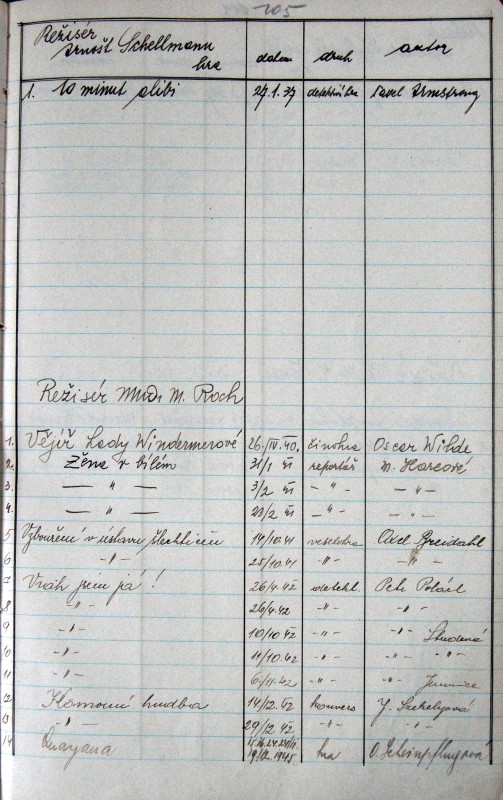 105
Režisér
Arnošt Schellmann
hra datum druh autor
1. 10 minut alibi 27.1.37 detektivní hra Pavel Armstrong
Režisér MUDr M. Roch
1. Vějíř Lady Windermerové 26./IV.40. činohra Oscar Wilde
2. Žena v bílém 31/1 41 reportáž M. Horcové
3. — " — 3/2 41 - " - - " -
4. — " — 23/2 41 - " - - " -
5 Vzbouření v ústavu šlechtičen 19/10.41 veselohra Axel Breidahl
6 - " - 25/10.41 - " -
7 Vrah jsem já! 26/4.42 detekt. Petr Polách
8 - " - 26/4.42 - " - - " -
9 - " - 10/10 42 - " - - " - Studená
10 - " - 11/10.42 - " - - " - - " -
11 - " - 6/11.42 - " - - " - Jinonice
12 Komorní hudba 14/12.42 konvers J. Szekelyová
13 - " - 29/12 42 - " - - " -
14 Guayana
19./12.1945 hra O. Scheinpflugová